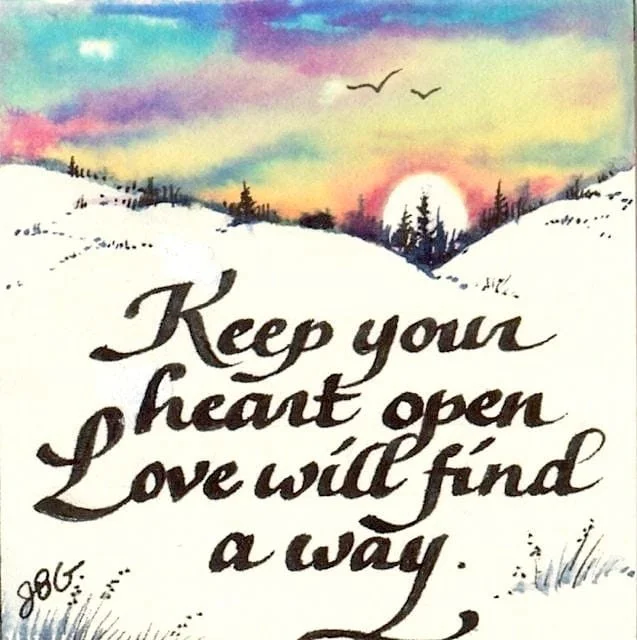 Keep your
heart open
Love will find
a way.